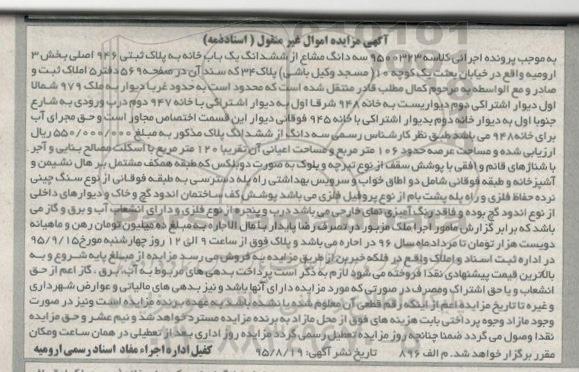 آگهی مزایده اموال غیر منقول ( اسناد ذمه)
به موجب پرونده اجرائی کلاسه ۹۵۰۰۳۲۳ سه دانگ مشاع از ششدانگ یک باب خانه به پلاک ثبتی ۹۴۶ اصلی بخش ۳
ارومیه واقع در خیابان بعثت یک کوچه ۱۰ (مسجد وکیل باشی) پلاک ۳۴ که سند آن در صفحه ۵۶۹ دفتر ۵ املاک ثبت و
صادر و مع الواسطه به مرحوم کمال مطلب قادر منتقل شده است که محدود است به حدود غربا دیوار به ملک ۹۷۹ شمالا
اول دیوار اشتراکی دوم دیواریست به خانه ۹۴۸ شرقا اول به دیوار اشتراکی با خانه ۹۴۷ دوم درب ورودی به شارع
جنوبا اول به دیوار خانه دوم بدیوار اشتراکی با خانه ۹۴۵ فوقانی دیوار این قسمت اختصاص مجاور است وحق مجرای آب
برای خانه ۹۴۸ می باشد طبق نظر کارشناس رسمی سه دانگ از ششدانگ پلاک مذکور به مبلغ ۵۵۰/۰۰۰/۰۰۰ ریال
ارزیابی شده و مساحت عرصه حدود ۱۰۶ متر مربع و مساحت اعیانی آن تقریبا ۱۲۰ متر مربع با اسکلت مصالح بنایی و آجر
با شناژهای قائم و افقی با پوشش سقف از نوع تیرچه و بلوک به صورت دوبلکس که طبقه همکف مشتمل بر هال نشیمن و
آشپزخانه و طبقه فوقانی شامل دو اطاق خواب و سرویس بهداشتی راه پله دسترسی به طبقه فوقانی از نوع سنگ چینی
نرده حفاظ فلزی و راه پله پشت بام از نوع پروفیل فلزی می باشد پوشش کف ساختمان اندود گچ و خاک و دیوارهای داخلی
از نوع اندود گچ بوده و فاقد رنگ آمیزی نمای خارجی می باشد درب و پنجره از نوع فلزی و دارای انشعاب آب و برق و گاز می
باشد که برابر گزارش مامور اجرا ملک مزبور در تصرف رضا پایدار با مال الاجاره به مبلغ ده میلیون تومان رهن و ماهیانه
دویست هزار تومان تا مردادماه سال ۹۶ در اجاره می باشد و پلاک فوق از ساعت ۹ الی ۱۲ روز چهارشنبه مورخ ۹۵/۹/۱۵
در اداره ثبت اسناد و املاک واقع در فلکه خیرین از طریق مزایده به فروش می رسد مزایده از مبلغ پایه شروع و به
بالاترین قیمت پیشنهادی نقدا فروخته می شود لازم به ذکر است پرداخت بدهی های مربوط به آب، برق، گاز اعم از حق
انشعاب و یا حق اشتراک ومصرف در صورتی که مورد مزایده دارای آنها باشد و نیز بدهی های مالیاتی و عوارض شهرداری
و غیره تا تاریخ مزایده اعم از اینکه رقم قطعی آن معلوم شده یا نشده باشد به عهده برنده مزایده است ونیز در صورت
وجود مازاد وجوه پرداختی بابت هزینه های فوق از محل مازاد به برنده مزایده مسترد خواهد شد و نیم عشر و حق مزایده
نقدا وصول می گردد ضمنا چنانچه روز مزایده تعطیل رسمی گردد مزایده روز اداری بعد از تعطیلی در همان ساعت ومکان
مقرر برگزار خواهد شد. م الف ۸۹۶ تاریخ نشر آگهی: ۹۵/۸/۱۹ کفیل اداره اجراء مفاد اسناد رسمی ارومیه